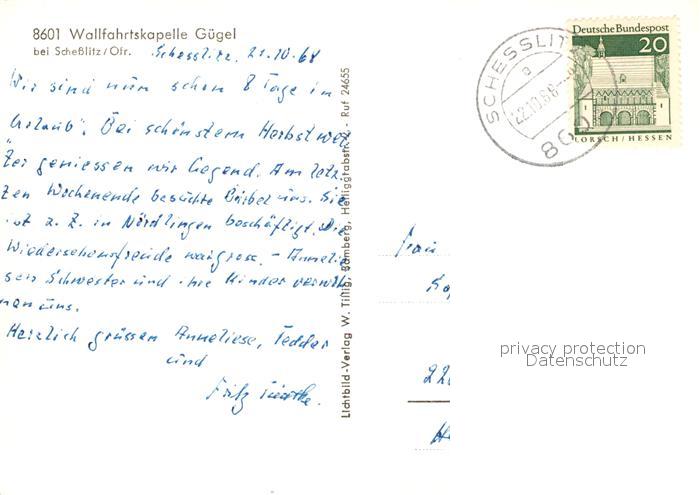 8601 Wallfahrtskapelle Gügel
bei Scheßlitz/Ofr.
Schesslitz, 21.10.68
Wir sind nun schon 8 Tage im
Urlaub. Bei schönstem Herbstwet-
ter geniessen wir Gegend. Am letz-
ten Wochenende besuchte Bärbel uns. Sie
ist z. Z. in Nördlingen beschäftigt. Die
Wiedersehensfreude war gross. - Annelie-
sen Schwester und ihre Kinder verwöh-
nen uns.
Herzlich grüssen Anneliese, Teddar
und
Fritz
Lichtbild-Verlag W. Tillig, Bamberg, Heiliggrabstr. 2 - Ruf 24655
SCHESSLITZ
a
22.10.68
8608
Deutsche Bundespost
20
LORSCH/HESSEN
Frau
privacy protection
Datenschutz
22